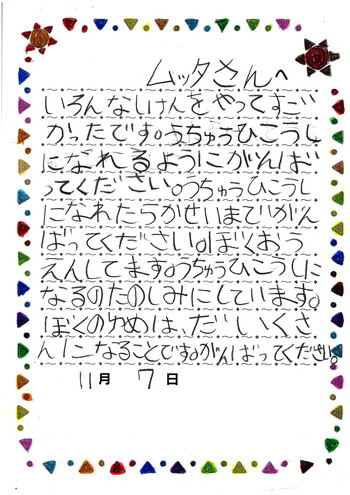 ムッタさんへ
いろんなしけんをやってすご
かったです。うちゅうひこうし
になれるようにがんば
ってください。うちゅうひこうし
になれたらかせいまでがん
ばってください。ぼくおう
えんしてます。うちゅうひこうしに
なるのたのしみにしています。
ぼくのゆめは、だいくさ
んになることです。がんばってください。
11月 7日